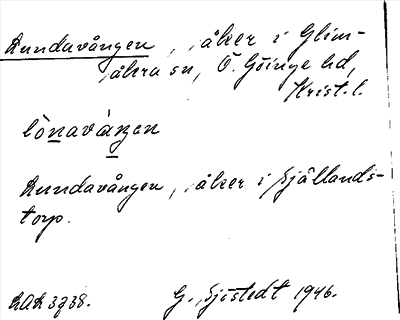 Lundavången, åker i Glim-
åkra sn, Ö. Göinge hd,
Krist. l.
lònaváŋen
Lundavången, åker i Sjöllands-
torp.
LAL 3938.
G. Sjöstedt 1946.